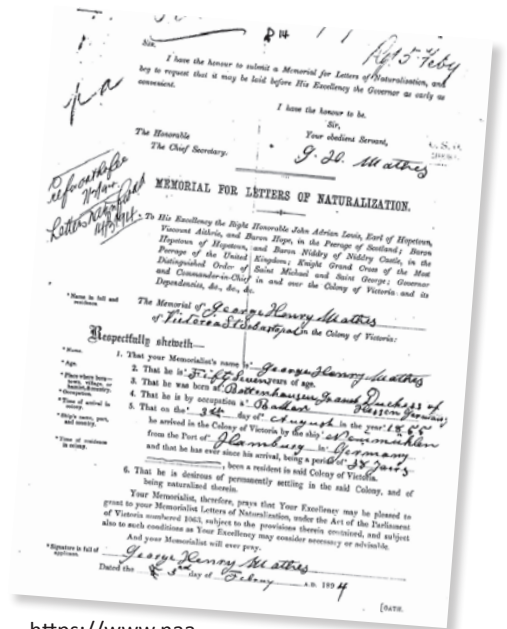 D 14
Rgt 5th Feby
Sir,
I have the honour to submit a Memorial for Letters of Naturalization, and
beg to request that it may be laid before His Excellency the Governor as early as
convenient.
pa
I have the honour to be,
Sir,
Your obedient Servant,
The Honorable
The Chief Secretary.
G. H. Mathes
MEMORIAL FOR LETTERS OF NATURALIZATION.
To His Excellency the Right Honorable John Adrian Louis, Earl of Hopetoun,
Viscount Aithrie, and Baron Hope, in the Peerage of Scotland; Baron
Hopetoun of Hopetoun, and Baron Niddry of Niddry Castle, in the
Peerage of the United Kingdom; Knight Grand Cross of the Most
Distinguished Order of Saint Michael and Saint George; Governor
and Commander-in-Chief in and over the Colony of Victoria and its
Dependencies, &c., &c., &c.
*Name in full and residence.
The Memorial of George Henry Mathes
of Victoria St Sebastopol in the Colony of Victoria:
Respectfully sheweth—
*Name.
1. That your Memorialist's name is George Henry Mathes
*Age.
2. That he is Fifty Seven years of age.
*Place where born—town, village, or hamlet, & country.
3. That he was born at Battenhausen Grand Duchess of
Hessen Germany
*Occupation.
4. That he is by occupation a Baker
*Time of arrival in colony.
5. That on the day of August in the year
*Ship's name, port, and country.
he arrived in the Colony of Victoria by the ship
from the Port of Hamburg in Germany
*Time of residence in colony.
and that he has ever since his arrival, being a period of 38 Years
, been a resident in said Colony of Victoria.
6. That he is desirous of permanently settling in the said Colony, and of
being naturalized therein.
Your Memorialist, therefore, prays that Your Excellency may be pleased to
grant to your Memorialist Letters of Naturalization, under the Act of the Parliament
of Victoria numbered 1063, subject to the provisions therein contained, and subject
also to such conditions as Your Excellency may consider necessary or advisable.
And your Memorialist will ever pray.
*Signature in full of applicant.
George Henry Mathes
Dated the 3rd day of Febury A.D. 1894
[OATH.
https://www.naa.